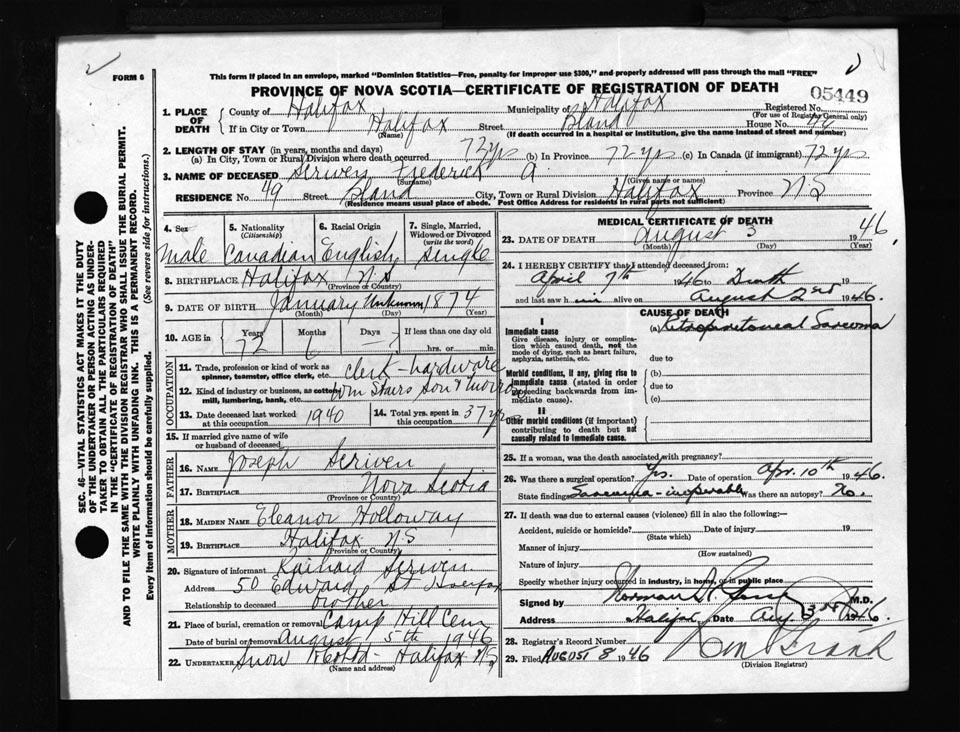 FORM 6
This form if placed in an envelope, marked "Dominion Statistics—Free, penalty for improper use $300," and properly addressed will pass through the mail "FREE"
PROVINCE OF NOVA SCOTIA—CERTIFICATE OF REGISTRATION OF DEATH
05449
1. PLACE OF DEATH County of Halifax Municipality of Halifax Registered No.
(For use of Registrar General only)
If in City or Town Halifax Street Bland House No.
(Name) (If death occurred in a hospital or institution, give the name instead of street and number)
2. LENGTH OF STAY (in years, months and days)
(a) In City, Town or Rural Division where death occurred 72 yrs (b) In Province 72 yrs (c) In Canada (if immigrant) 72 yrs
3. NAME OF DECEASED Scriven Frederick A.
(Surname) (Given name or names)
RESIDENCE No. 49 Street Bland City, Town or Rural Division Halifax Province N.S
(Residence means usual place of abode. Post Office Address for residents in rural parts not sufficient)
4. Sex
Male
5. Nationality
(Citizenship)
Canadian
6. Racial Origin
English
7. Single, Married, Widowed or Divorced
(write the word)
Single
8. BIRTHPLACE Halifax N.S
9. DATE OF BIRTH January Unknown 1874
(Month) (Day) (Year)
10. AGE in Years Months Days If less than one day old
72 6 — ? hrs. or min.
OCCUPATION
11. Trade, profession or kind of work as spinner, teamster, office clerk, etc. Clerk-hardware
12. Kind of industry or business, as cotton mill, lumbering, bank, etc. Wm Stairs Son & Morrow
13. Date deceased last worked at this occupation 1940
14. Total yrs. spent in this occupation 37 yrs
15. If married give name of wife or husband of deceased
FATHER
16. NAME Joseph Scriven
17. BIRTHPLACE Nova Scotia
(Province or Country)
MOTHER
18. MAIDEN NAME Eleanor Holloway
19. BIRTHPLACE Halifax N.S
(Province or Country)
20. Signature of informant Scriven
Address 50 Edward St Halifax
Relationship to deceased brother
21. Place of burial, cremation or removal Camp Hill Cem
Date of burial or removal August 5th 1946
22. UNDERTAKER Snow & Co Ltd - Halifax N.S
(Name and address)
MEDICAL CERTIFICATE OF DEATH
23. DATE OF DEATH August 3 1946
(Month) (Day) (Year)
24. I HEREBY CERTIFY that I attended deceased from:
April 7th 1946 to Death 19
and last saw him alive on August 2nd 1946.
CAUSE OF DEATH
I
Immediate cause
Give disease, injury or complication which caused death, not the mode of dying, such as heart failure, asphyxia, asthenia, etc.
(a) Retroperitoneal Sarcoma
due to
Morbid conditions, if any, giving rise to immediate cause (stated in order proceeding backwards from immediate cause).
(b)
due to
(c)
II
Other morbid conditions (if important) contributing to death but not causally related to immediate cause.
25. If a woman, was the death associated with pregnancy?
26. Was there a surgical operation? Yes. Date of operation Apr. 10th 1946.
State finding Sarcoma-inoperable Was there an autopsy? No.
27. If death was due to external causes (violence) fill in also the following:—
Accident, suicide or homicide? Date of injury 19
(State which)
Manner of injury
(How sustained)
Nature of injury
Specify whether injury occurred in industry, in home, or in public place
Signed by Norman M.D.
Address Halifax Date Aug. 3rd 1946.
28. Registrar's Record Number
29. Filed AUGUST 8 1946
(Division Registrar)
SEC. 46—VITAL STATISTICS ACT MAKES IT THE DUTY
OF THE UNDERTAKER OR PERSON ACTING AS UNDER-
TAKER TO OBTAIN ALL THE PARTICULARS REQUIRED
IN THE "CERTIFICATE OF REGISTRATION OF DEATH"
AND TO FILE THE SAME WITH THE DIVISION REGISTRAR WHO SHALL ISSUE THE BURIAL PERMIT.
WRITE PLAINLY WITH UNFADING INK. THIS IS A PERMANENT RECORD.
Every item of information should be carefully supplied. (See reverse side for instructions.)